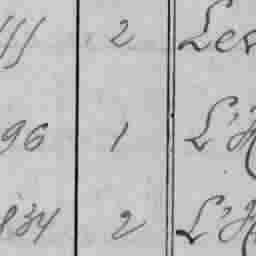 111 2 Les
96 1 L'H
834 2 L'H